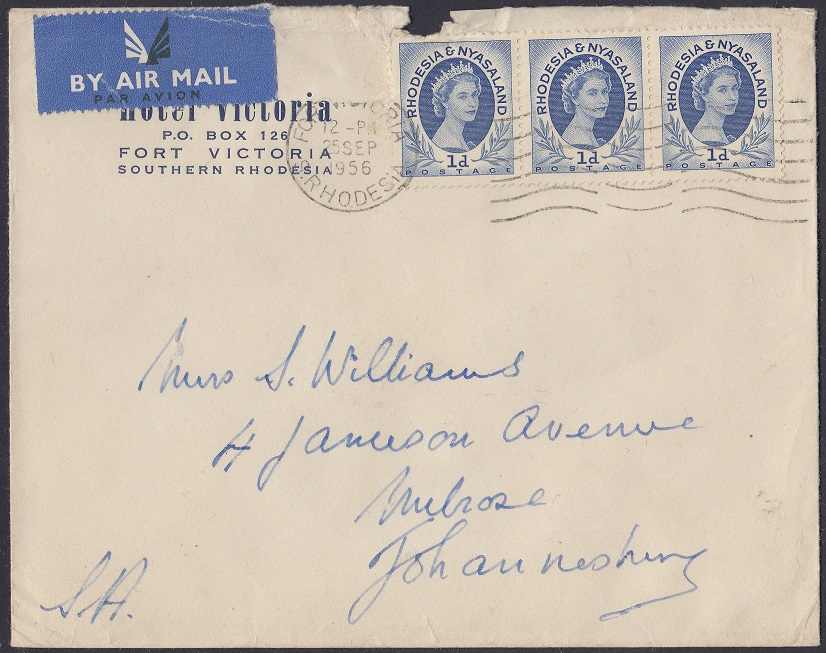 BY AIR MAIL
PAR AVION
Hotel Victoria
P.O. BOX 126
FORT VICTORIA
SOUTHERN RHODESIA
FORT VICTORIA
12 - PM
25 SEP
1956
S. RHODESIA
RHODESIA & NYASALAND
1d
POSTAGE
RHODESIA & NYASALAND
1d
POSTAGE
RHODESIA & NYASALAND
1d
POSTAGE
Mrs S. Williams
4 Jameson Avenue
Melrose
Johannesburg
S.A.